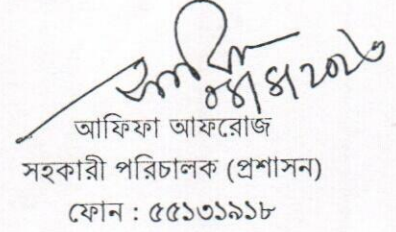 আফিফা আফরোজ
সহকারী পরিচালক (প্রশাসন)
ফোন : ৫৫১৩১৯১৮